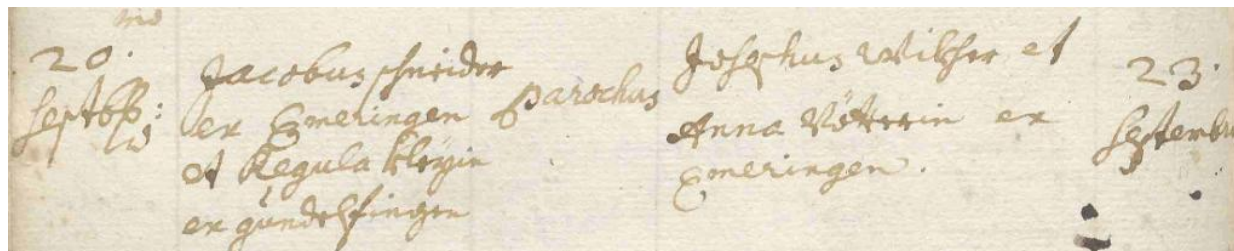 20.
Septbb:
Jacobus schneider
ex Emeringen
et Regula kleyin
ex gundelfingen
parochus
Josephus Wilhser et
Anna Vötterin ex
Emeringen.
23.
Septembris